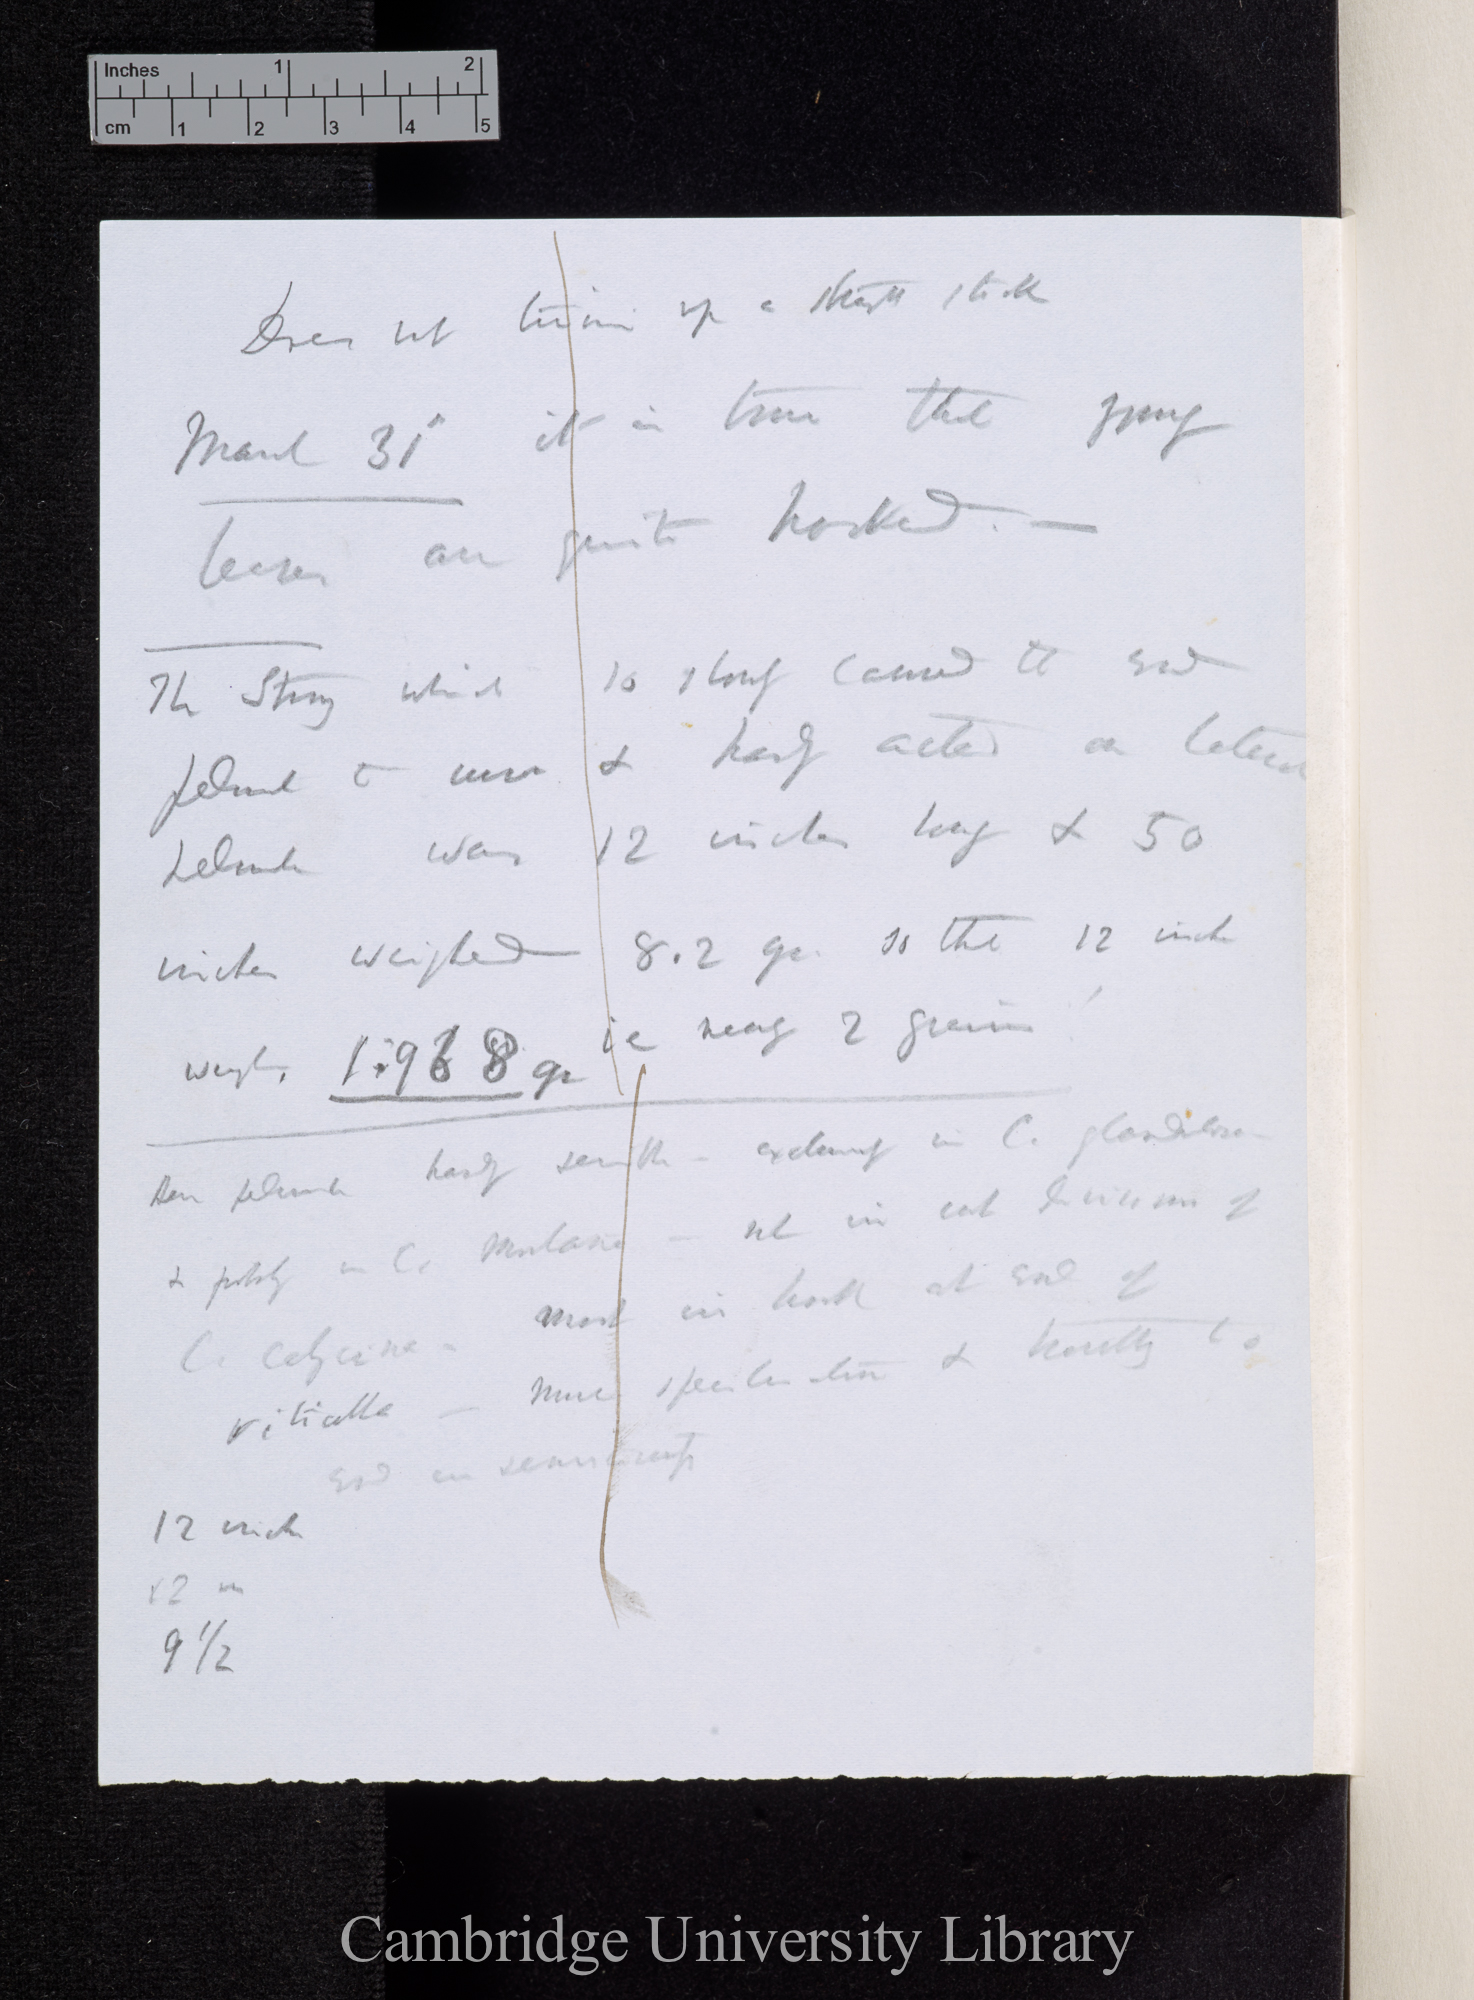 Inches 1 2
cm 1 2 3 4 5
Does not twine up a stick
March 31st it is true that young
leaves are quite hooked. —
The String which so slowly caused the end
petiole to move & hardly acted on lateral
petiole was 12 inches long & 50
inches weighed 8.2 gr. so the 12 inch
weighs 1.968 gr ie nearly 2 grains
petiole hardly sensitive — in C. glandulosa
& probably in C. Montana — not in division of
C. calycina — most in hook at end of
viticella — more &
end
12 inch
12 in
9 1/2
Cambridge University Library